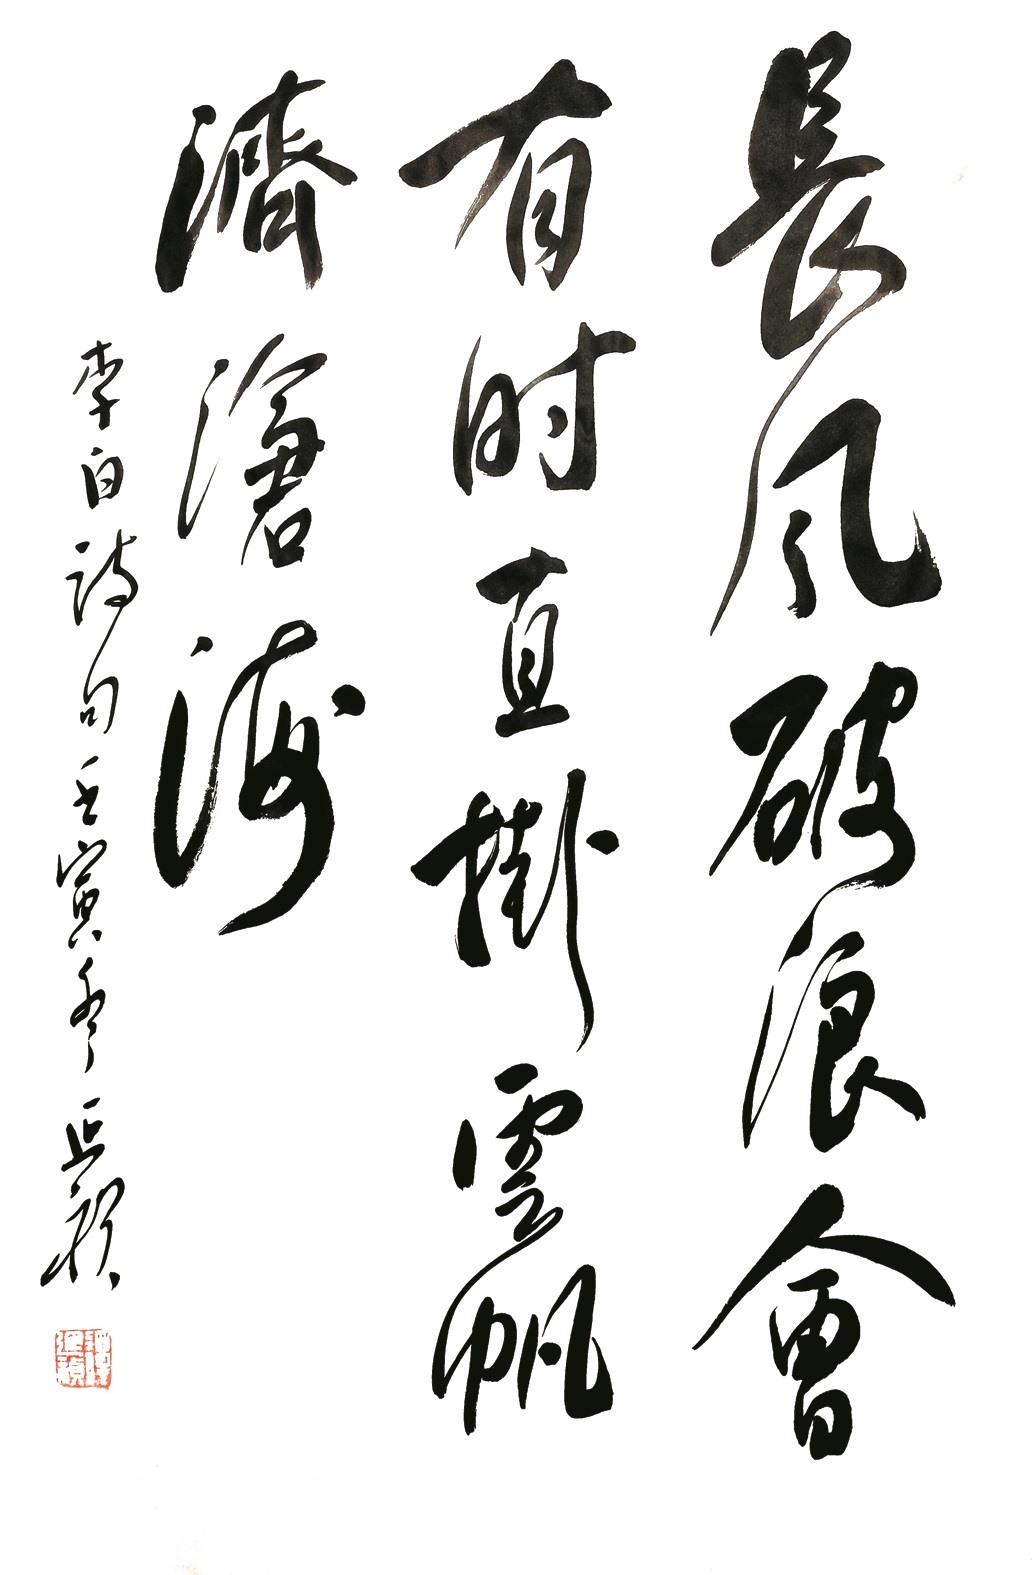 長风破浪會
有时直掛雲帆
濟滄海
李白詩句壬寅